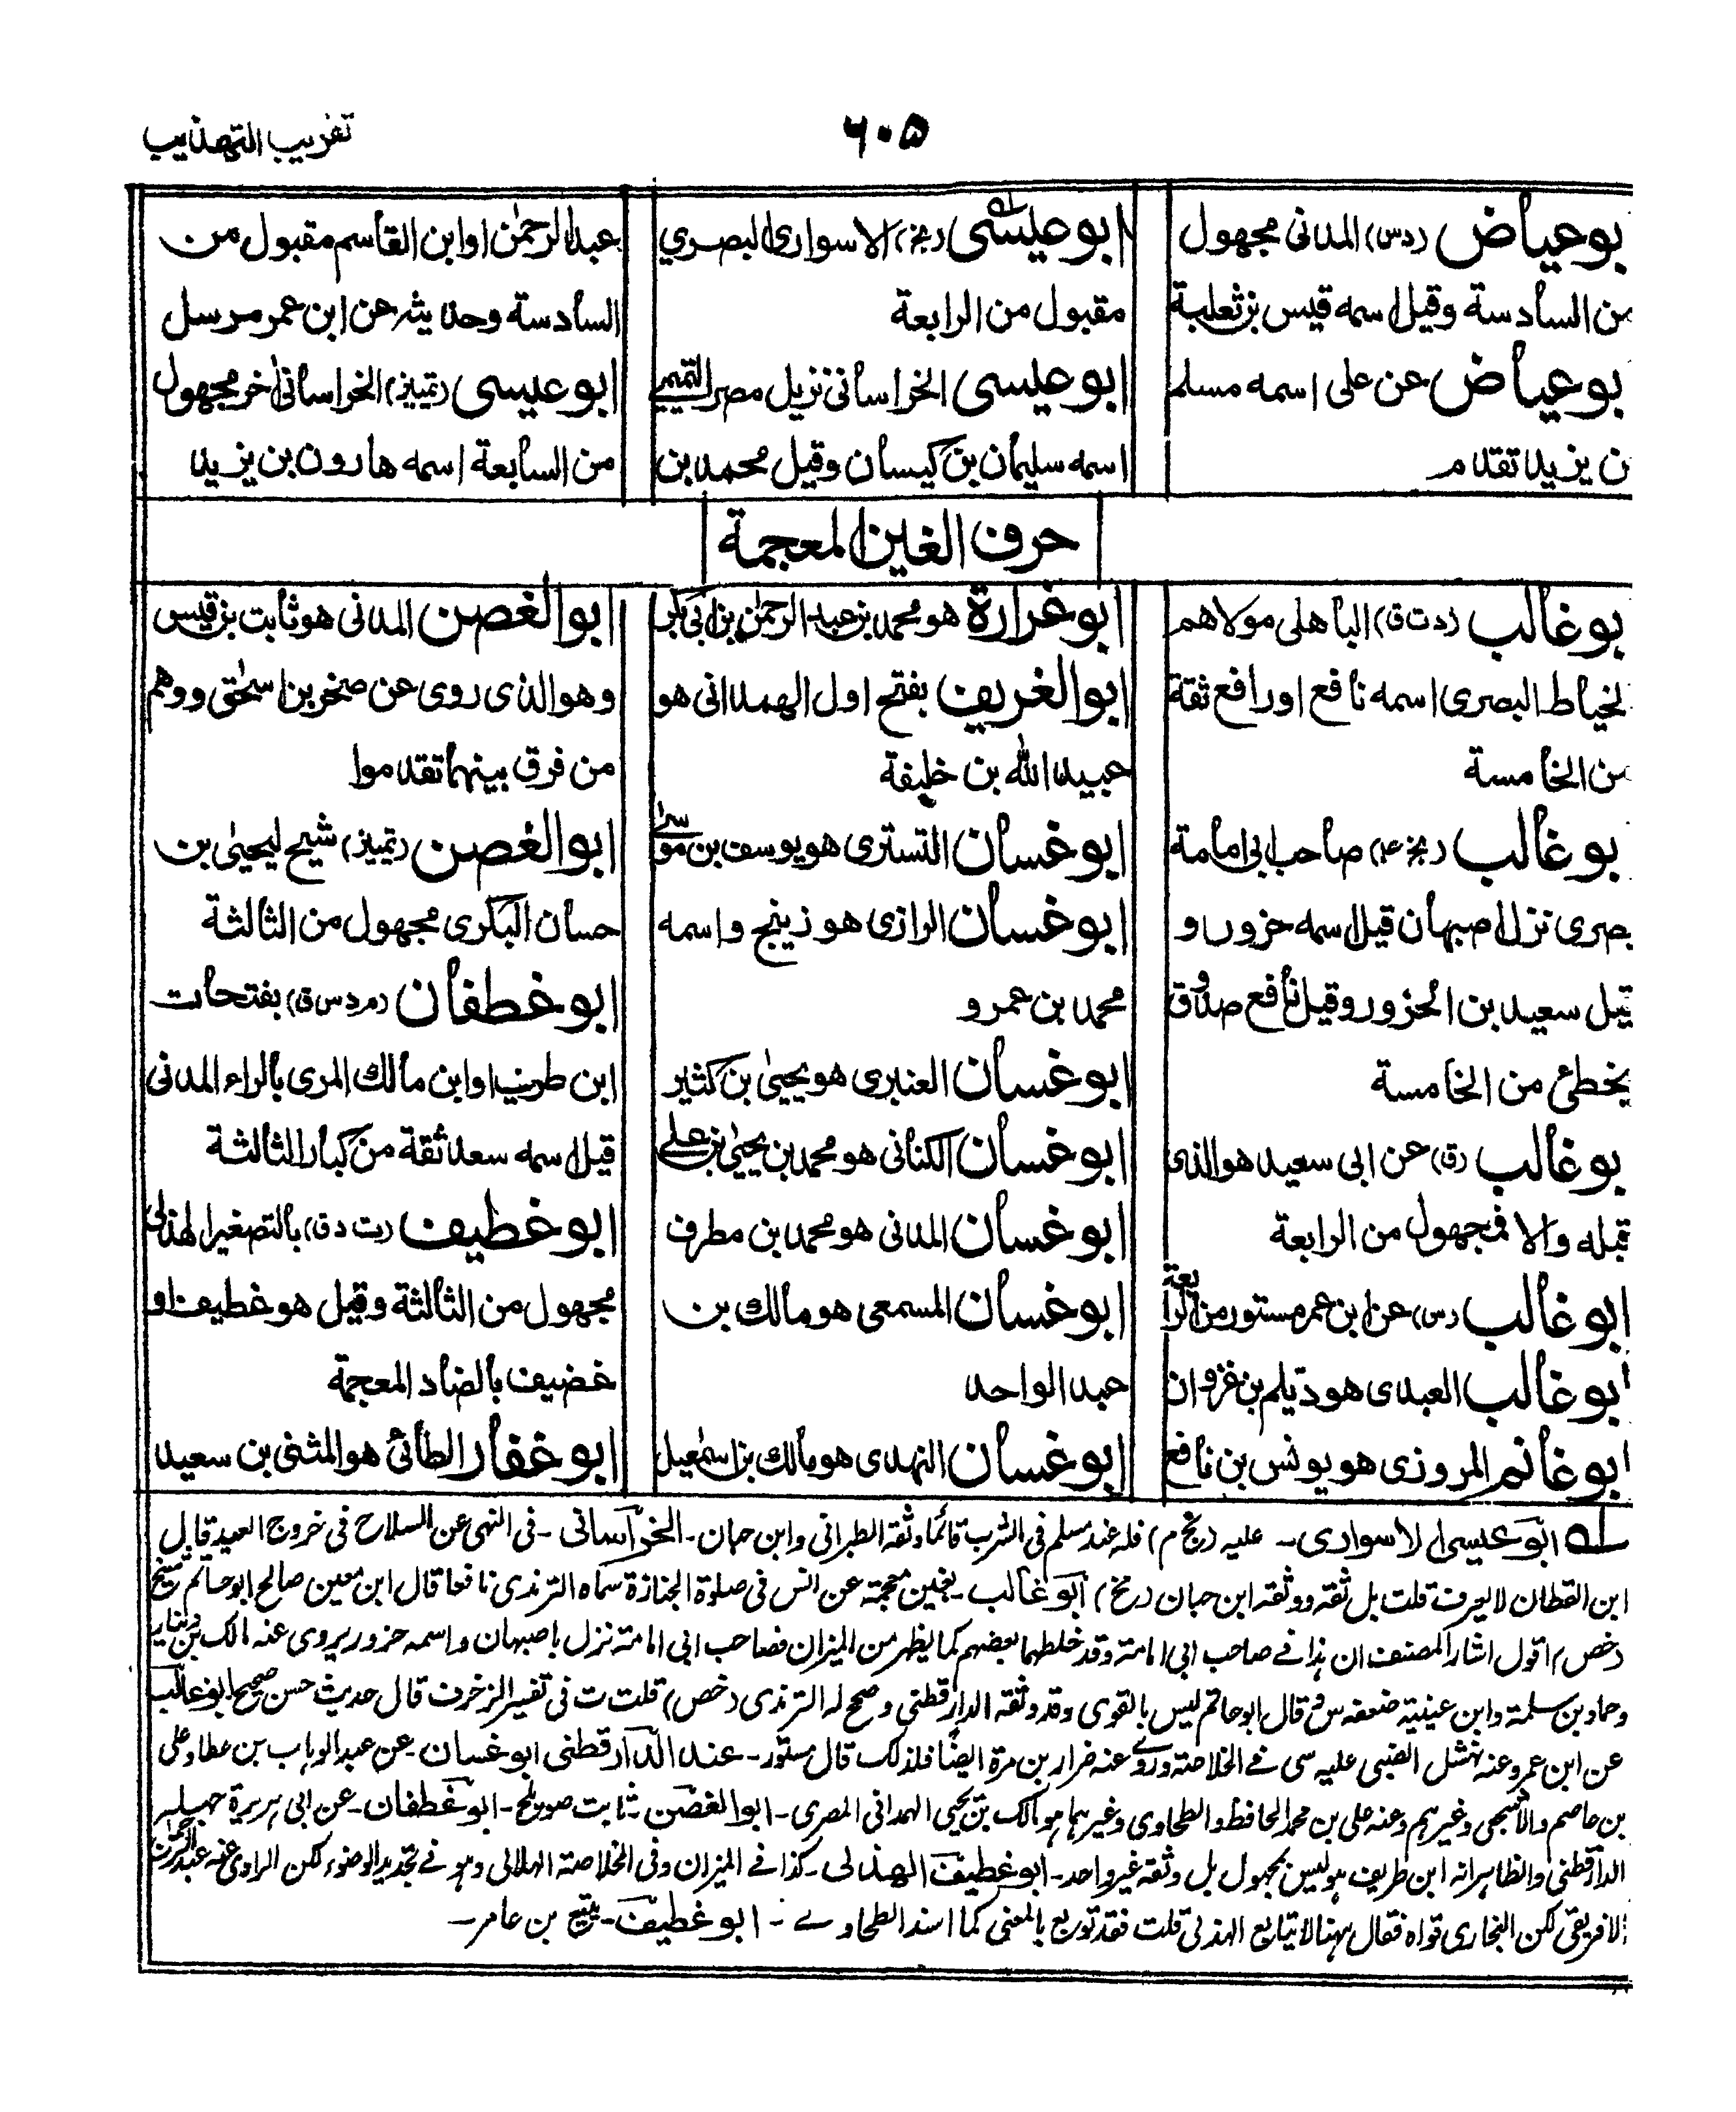 ٦٠٥
تقريب التهذيب
بوعياض (دس) المدنى مجهول
من السادسة وقيل اسمه قيس بن ثعلبة
بوعياض عن على اسمه مسلم
ن يزيد تقدم
ابوعيسى (بخ) الاسوارى البصري
مقبول من الرابعة
ابوعيسى الخراسانى نزيل مصر التميمي
اسمه سليمان بن كيسان وقيل محمد بن
عبد الرحمٰن اوابن القاسم مقبول من
السادسة وحديثه عن ابن عمر مرسل
ابوعيسى (تمييز) الخراسانى اخر مجهول
من السابعة اسمه هارون بن يزيد
حرف الغين المعجمة
بوغالب (دت ق) الباهلى مولاهم
لخياط البصرى اسمه نافع اورافع ثقة
من الخامسة
بوغالب (بخ ع) صاحب ابى امامة
بصرى نزل اصبهان قيل اسمه حزور و
قيل سعيد بن الحزور وقيل نافع صدوق
يخطئ من الخامسة
بوغالب (ق) عن ابى سعيد هوالذى
قبله والا فمجهول من الرابعة
ابوغالب (س) عن ابن عمر مستور من الرابعة
ابوغالب العبدى هو ديلم بن غزوان
ابوغانم المروزى هو يونس بن نافع
ابوغرارة هو محمد بن عبد الرحمٰن بن ابى بكر
ابوالغريف بفتح اوله الهمدانى هو
عبيد الله بن خليفة
ابوغسان التسترى هو يوسف بن موسى
ابوغسان الرازى هو زنيج واسمه
محمد بن عمرو
ابوغسان العنبرى هو يحيىٰ بن كثير
ابوغسان الكنانى هو محمد بن يحيىٰ بن على
ابوغسان المدنى هو محمد بن مطرف
ابوغسان المسمعى هو مالك بن
عبد الواحد
ابوغسان النهدى هو مالك بن اسمٰعيل
ابوالغصن المدنى هو ثابت بن قيس
وهوالذى روى عن صخر بن اسحٰق ووهم
من فرق بينهما تقدموا
ابوالغصن (تمييز) شيخ ليحيىٰ بن
حسان البكرى مجهول من الثالثة
ابوغطفان (م د س ق) بفتحات
ابن طريف اوابن مالك المرى بالراء المدنى
قيل اسمه سعد ثقة من كبار الثالثة
ابوغطيف (ت دق) بالتصغير الهذلى
مجهول من الثالثة وقيل هو غطيف او
غضيف بالضاد المعجمة
ابوغفار الطائى هو المثنى بن سعيد
له ابوعيسى الاسوارى - عليه (بخ م) فله عند مسلم فى الشرب قائما وثقه الطبرانى وابن حبان - الخراسانى - فى النهى عن السلاح فى خروج العيد قال
ابن القطان لا يعرف قلت بل ثقه ووثقه ابن حبان (بخ) ابوغالب - بغين معجمة عن انس فى صلوة الجنازة سماه الترمذى نافعا قال ابن معين صالح ابوحاتم شيخ
(خص) اقول اشار المصنف ان هذا غير صاحب ابى امامة وقد خلطهما بعضهم كما يظهر من الميزان فصاحب ابى امامة نزل باصبهان واسمه حزور يروى عنه مالك بن دينار
وحماد بن سلمة وابن عيينة ضعفه س قال ابوحاتم ليس بالقوى وقد وثقه الدارقطنى وصحح له الترمذى (خص) قلت ت فى تفسير الزخرف قال حديث حسن صحيح ابوغالب
عن ابن عمرو عنه نهشل الضبى عليه سى فے الخلاصة وروے عنه ضرار بن مرة ايضا فلذلك قال مستور - عند الدارقطنى ابوغسان - عن عبد الوهاب بن عطاء وعلى
بن عاصم والاشجعى وغيرهم وعنه على بن محمد الحافظ والطحاوى وغيرهما هو مالك بن يحيى الهمدانى المصرى - ابوالغصن - ثابت صويلح - ابوغطفان - عن ابى هريرة جهله
الدارقطنى والظاهر انه ابن طريف هو ليس بمجهول بل وثقه غير واحد - ابوغطيف الهذلى - كذا فے الميزان وفى الخلاصة الهلالى وهو فے تجديد الوضوء لكن الراوى عنه عبد الرحمٰن
الافريقى لكن البخارى قواه فقال ههنا لا يتابع الهذلى قلت فقد توبع بالمعنى كما اسند الطحاوے - ابوغطيف - بن عامر -